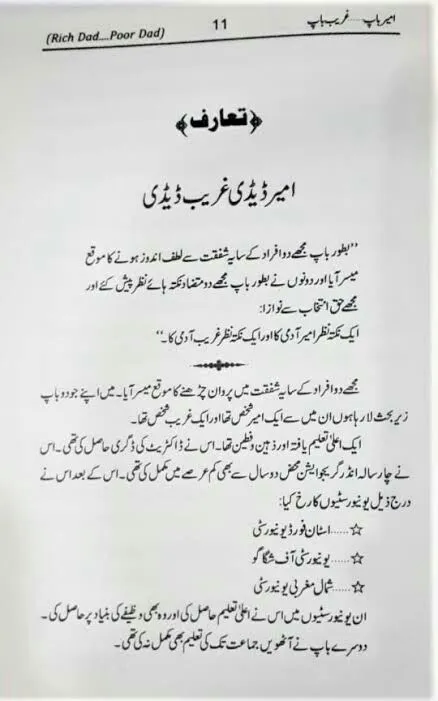 (Rich Dad....Poor Dad)
11
امیر باپ.....غریب باپ
﴿تعارف﴾
امیر ڈیڈی غریب ڈیڈی
''بطور باپ مجھے دو افراد کے سایہ شفقت سے لطف اندوز ہونے کا موقع
میسر آیا اور دونوں نے بطور باپ مجھے دو متضاد نکتہ ہائے نظر پیش کئے اور
مجھے حق انتخاب سے نوازا:
ایک نکتہ نظر امیر آدمی کا اور ایک نکتہ نظر غریب آدمی کا۔''
مجھے دو افراد کے سایہ شفقت میں پروان چڑھنے کا موقع میسر آیا۔ میں اپنے جو دو باپ
زیر بحث لا رہا ہوں ان میں سے ایک امیر شخص تھا اور ایک غریب شخص تھا۔
ایک اعلیٰ تعلیم یافتہ اور ذہین و فطین تھا۔ اس نے ڈاکٹریٹ کی ڈگری حاصل کی تھی۔ اس
نے چار سالہ انڈر گریجوایشن محض دو سال سے بھی کم عرصے میں مکمل کی تھی۔ اس کے بعد اس نے
درج ذیل یونیورسٹیوں کا رخ کیا:
☆......اسٹان فورڈ یونیورسٹی
☆......یونیورسٹی آف شگاگو
☆......شمال مغربی یونیورسٹی
ان یونیورسٹیوں میں اس نے اعلیٰ تعلیم حاصل کی اور وہ بھی وظیفے کی بنیاد پر حاصل کی۔
دوسرے باپ نے آٹھویں جماعت تک کی تعلیم بھی مکمل نہ کی تھی۔